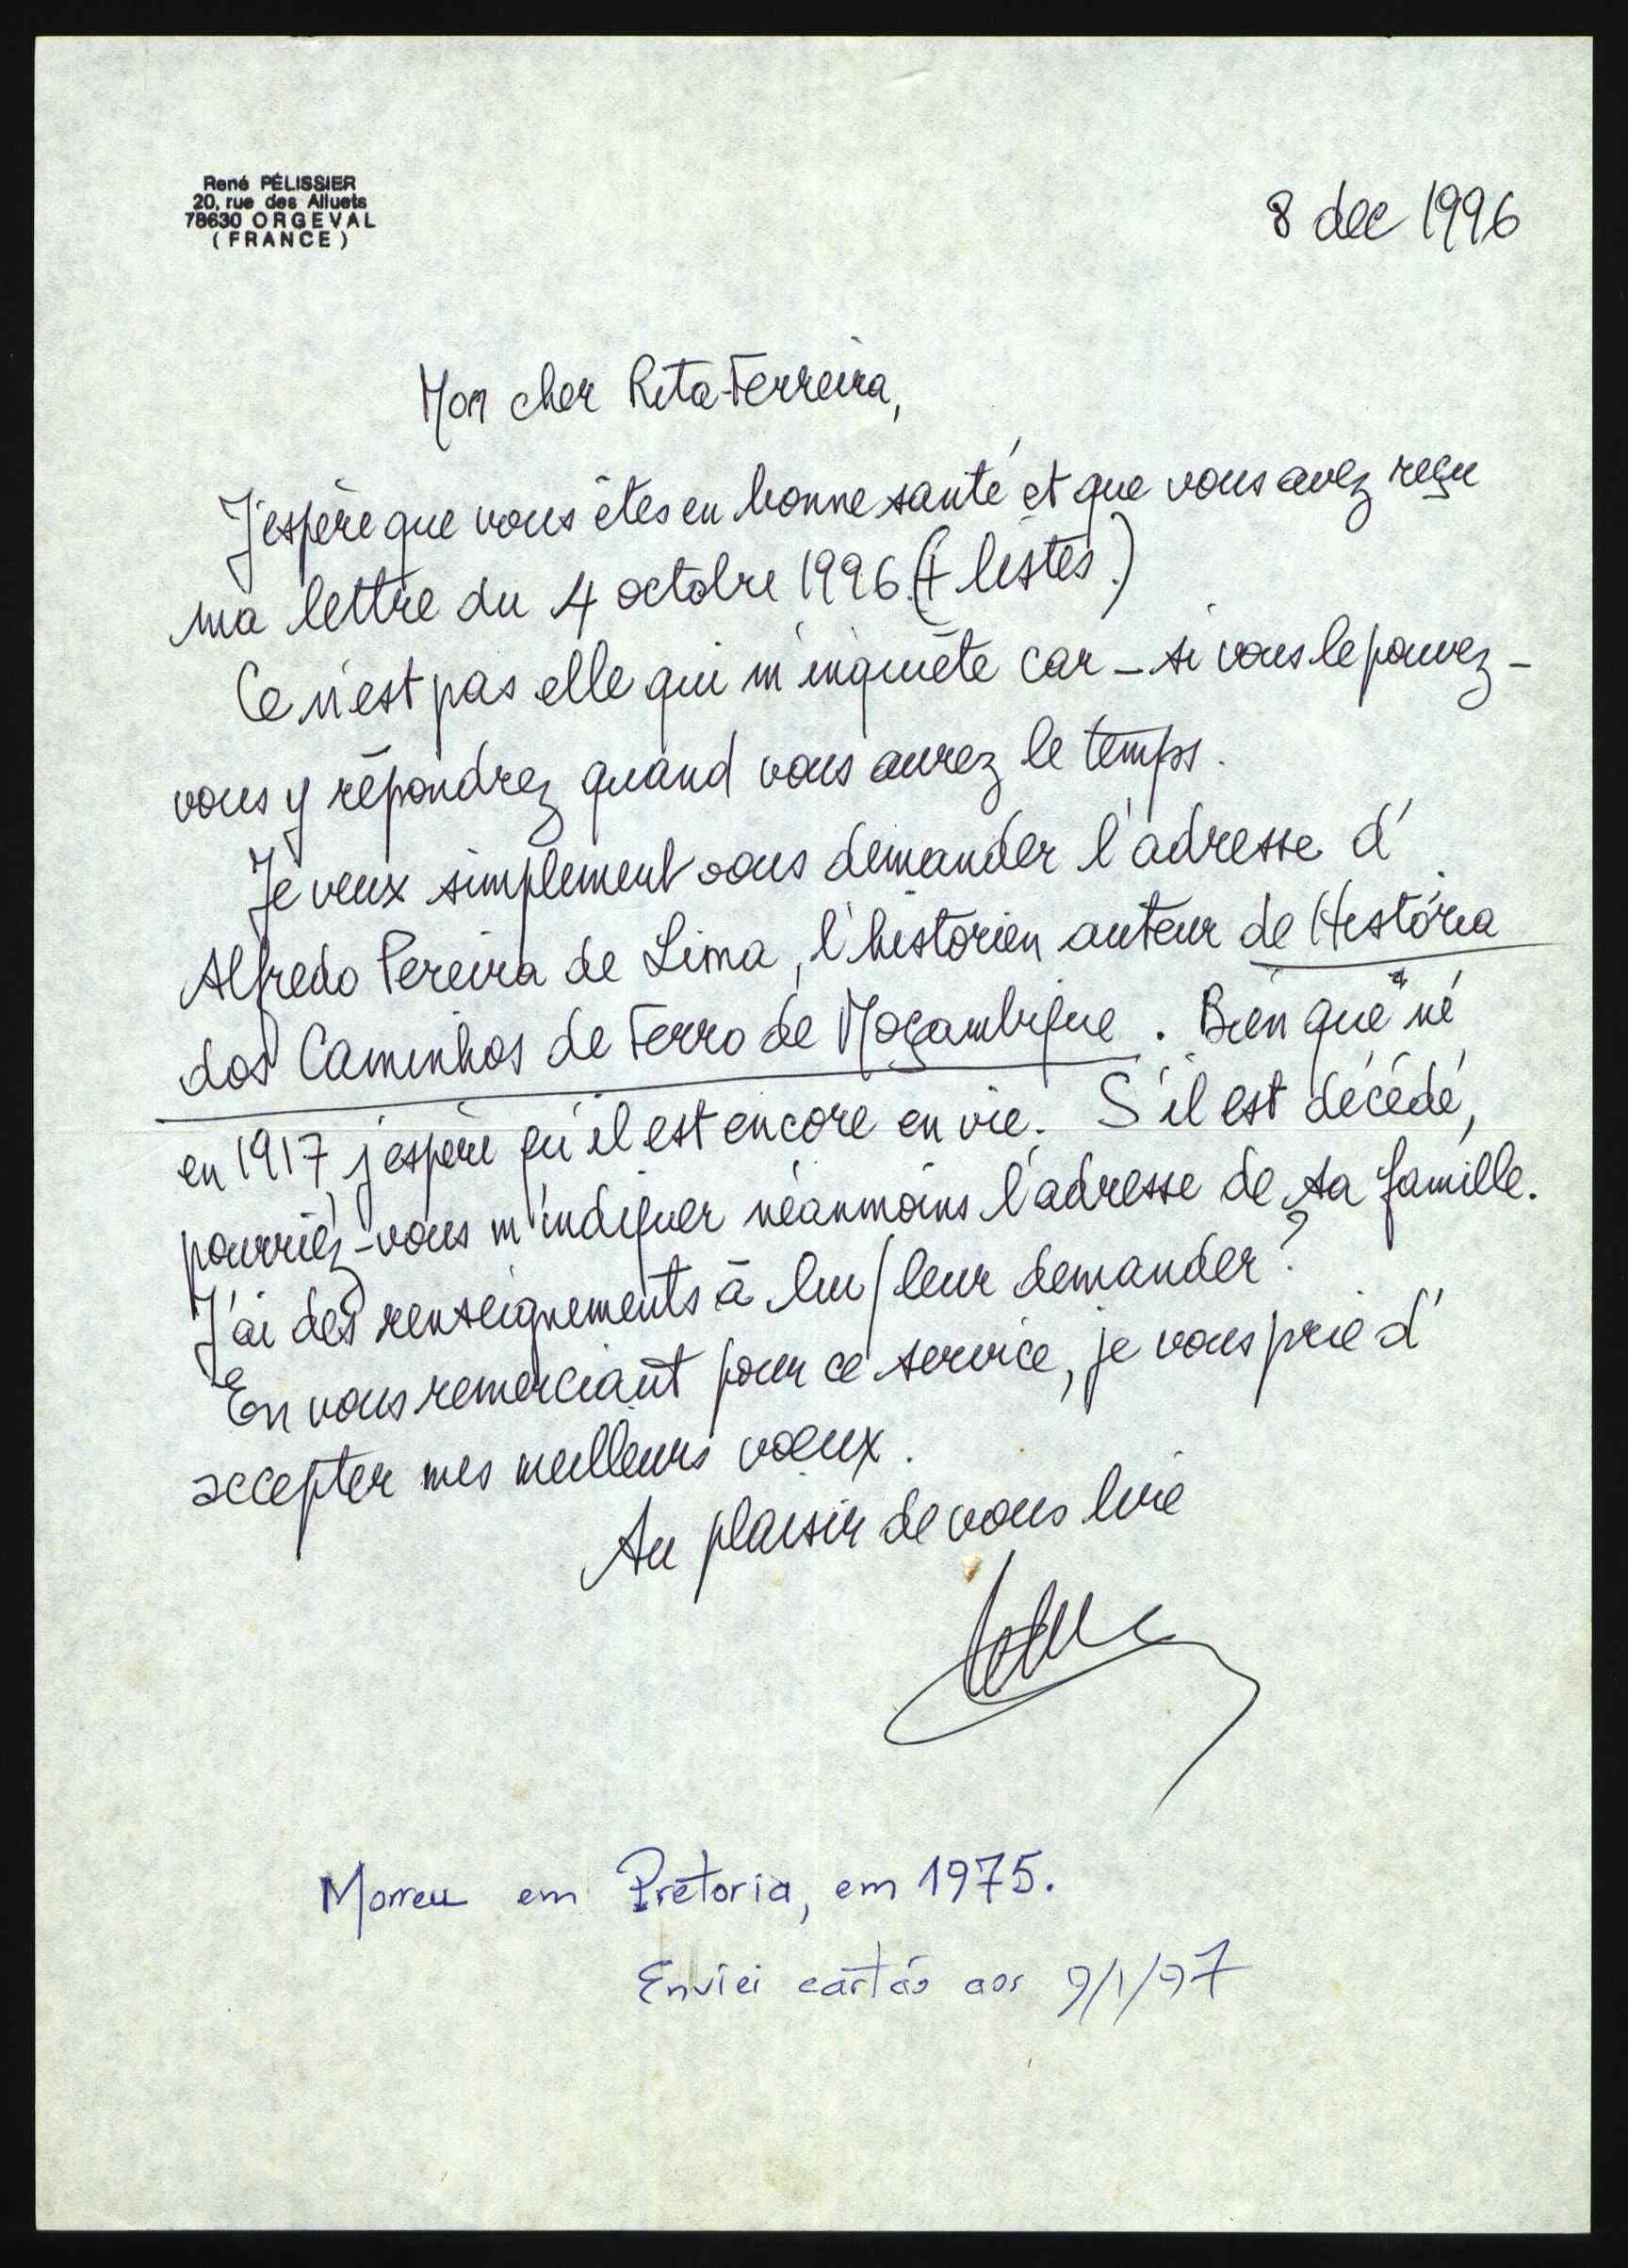 René PÉLISSIER
20, rue des Alluets
78630 ORGEVAL
( FRANCE )
8 dec 1996
Mon cher Rita-Ferreira,
J'espère que vous êtes en bonne santé et que vous avez reçu
ma lettre du 4 octobre 1996 (+ listes.)
Ce n'est pas elle qui m'inquiète car – si vous le pouvez –
vous y répondrez quand vous aurez le temps.
Je veux simplement vous demander l'adresse d'
Alfredo Pereira de Lima, l'historien auteur de História
dos Caminhos de Ferro de Moçambique. Bien que né
en 1917, j'espère qu'il est encore en vie. S'il est décédé,
pourriez-vous m'indiquer néanmoins l'adresse de sa famille.
J'ai des renseignements à lui/leur demander?
En vous remerciant pour ce service, je vous prie d'
accepter mes meilleurs vœux.
Au plaisir de vous lire
Morreu em Pretoria, em 1975.
Enviei cartão aos 9/1/97